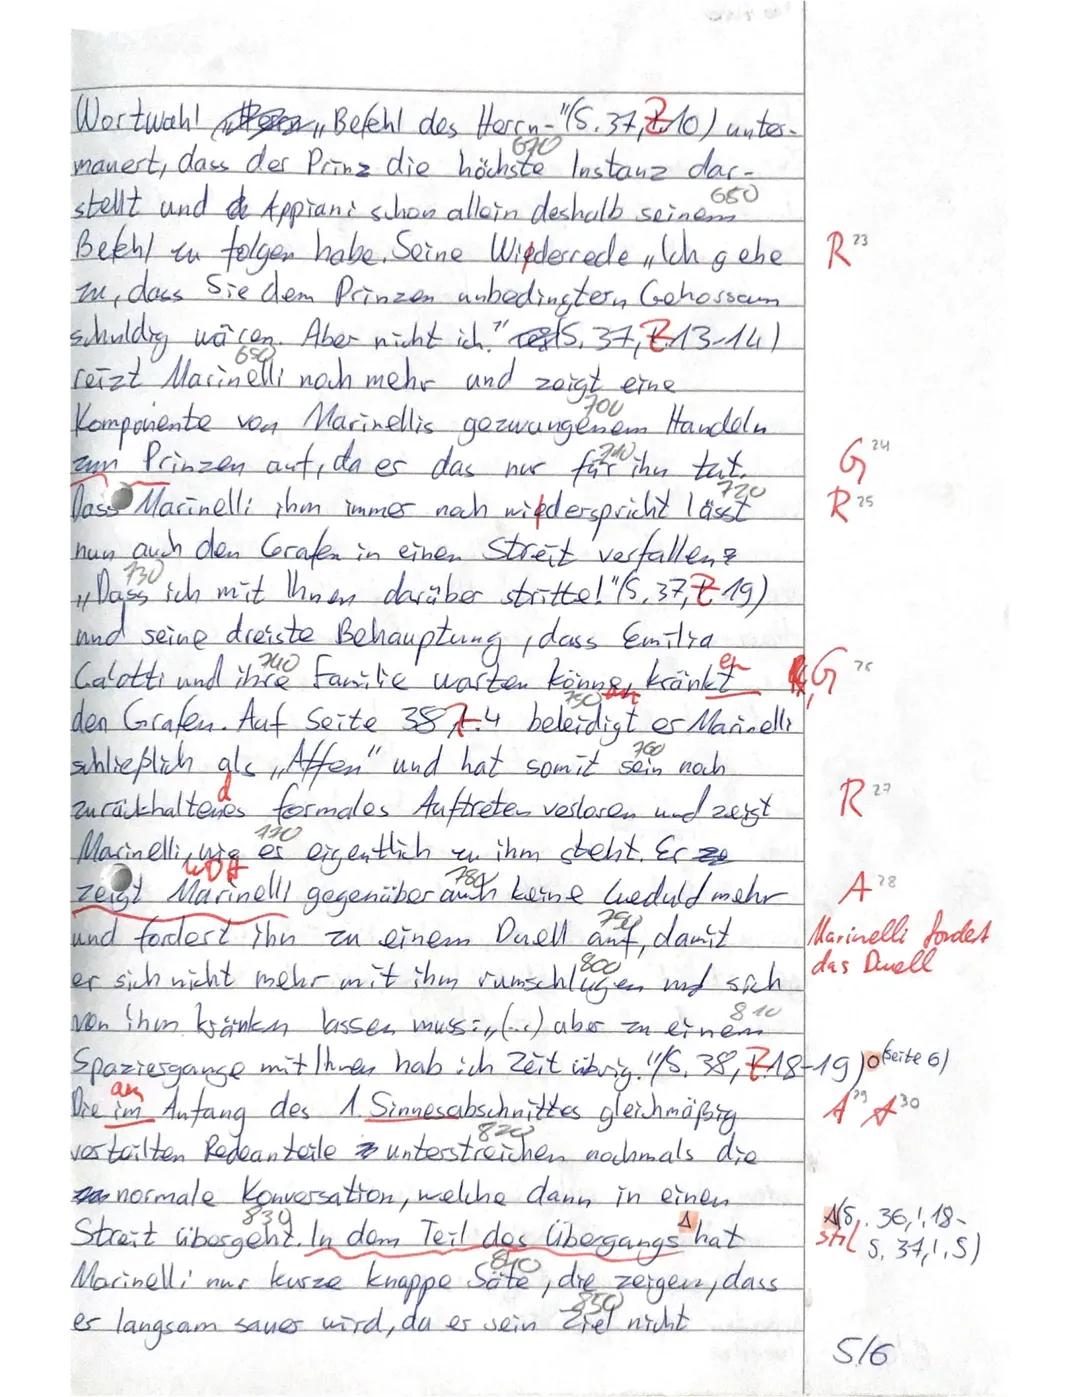 Wortwahl „Befehl des Herrn-"(S. 37, Z.10) unter-
670
mauert, dass der Prinz die höchste Instanz dar-
680
stellt und Appiani schon allein deshalb seinem
Befehl zu folgen habe. Seine Wiederrede „Ich gebe R 23
zu, dass Sie dem Prinzen unbedingtern Gehorsam
schuldig wären. Aber nicht ich." (S. 37, Z.13-14)
690
reizt Marinelli noch mehr und zeigt eine
700
Komponente von Marinellis gezwungenem Handeln
710
zum Prinzen auf, da er das nur für ihn tut. G 24
720
Dass Marinelli ihm immer noch wiederspricht lässt R 25
nun auch den Grafen in einen Streit verfallen:
730
„Dass ich mit Ihnen darüber stritte!"(S. 37, Z.19)
und seine dreiste Behauptung, dass Emilia
740 en
Galotti und ihre Familie warten könne, kränkt R, G 26
750 an
den Grafen. Auf Seite 38 Z.4 beleidigt er Marinelli
760
schließlich als „Affen" und hat somit sein noch
d
zurückhaltenes formales Auftreten verloren und zeigt R 27
770
Marinelli, wie er eigentlich zu ihm steht. Er
WDH 780
zeigt Marinelli gegenüber auch keine Geduld mehr A 28
790
und fordert ihn zu einem Duell auf, damit Marinelli fordert
800 das Duell
er sich nicht mehr mit ihm rumschlagen und sich
810
von ihm kränken lassen muss: „(...) aber zu einem
Spaziergange mit Ihnen hab ich Zeit übrig."(S. 38, Z.18-19) o (Seite 6)
am
Die im Anfang des 1. Sinnesabschnittes gleichmäßig A 29 A 30
820
verteilten Redeanteile unterstreichen nochmals die
normale Konversation, welche dann in einen
830
Streit übergeht. In dem Teil des Übergangs hat A stil (S. 36, 18-
S. 37, 5)
840
Marinelli nur kurze knappe Säte, die zeigen, dass
850
er langsam sauer wird, da er sein Ziel nicht
5/6